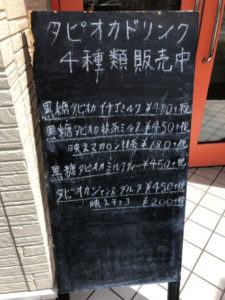 タピオカドリンク
4種類販売中
黒糖タピオカイチゴミルク ¥480+税
黒糖タピオカ抹茶ミルク ¥450+税
映えマカロン 抹茶 ¥180+税
黒糖タピオカミルクティー ¥450+税
タピオカジャンヌダルク ¥450+税
映え ¥200+税